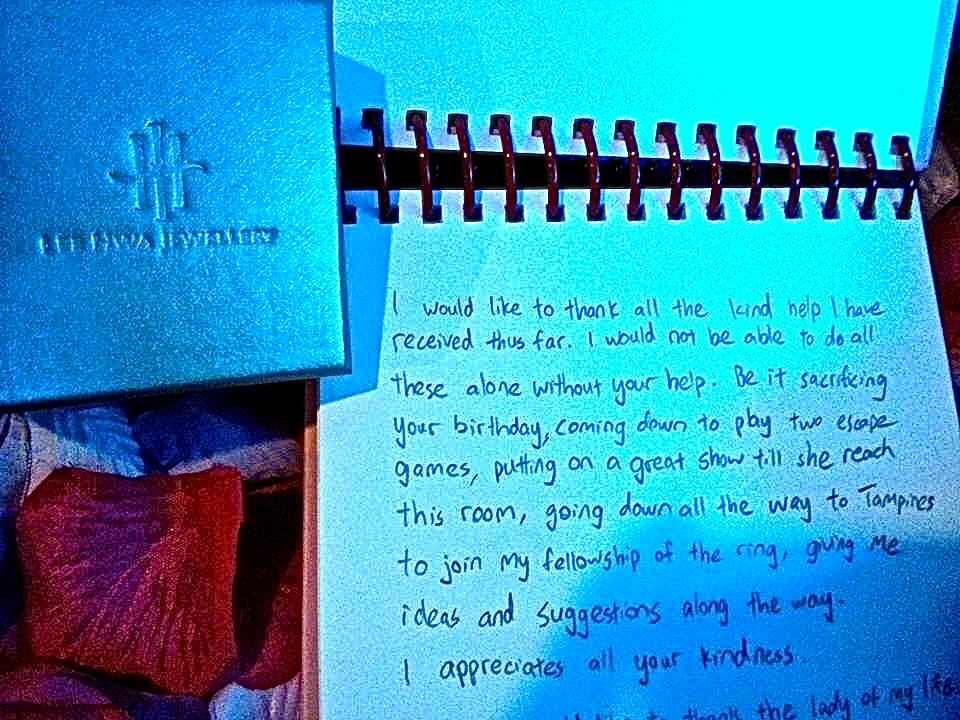 LEE HWA JEWELLERY
I would like to thank all the kind help I have
received thus far. I would not be able to do all
these alone without your help. Be it sacrificing
your birthday, coming down to play two escape
games, putting on a great show till she reach
this room, going down all the way to Tampines
to join my fellowship of the ring, giving me
ideas and suggestions along the way.
I appreciates all your kindness.
like to thank the lady of my life